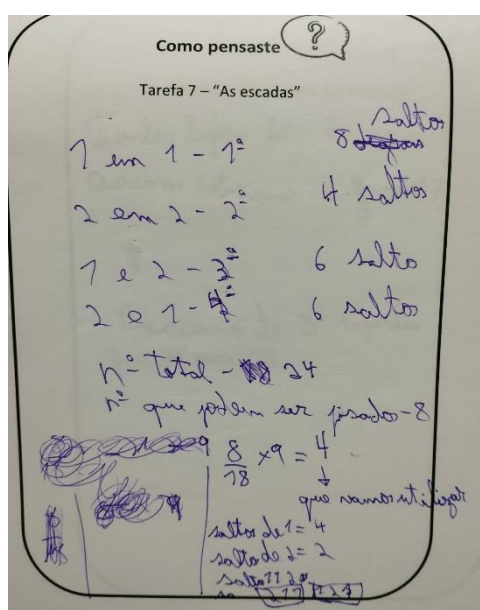 Como pensaste ?
Tarefa 7 – “As escadas”
saltos
1 em 1 - 1ª 8
2 em 2 - 2ª 4 saltos
1 e 2 - 3ª 6 salto
2 e 1 - 4ª 6 saltos
nº total - 24
nº que podem ser pisado - 8
8/18 x 9 = 4
↓
que vamos utilizar
saltos de 1 = 4
salto de 2 = 2